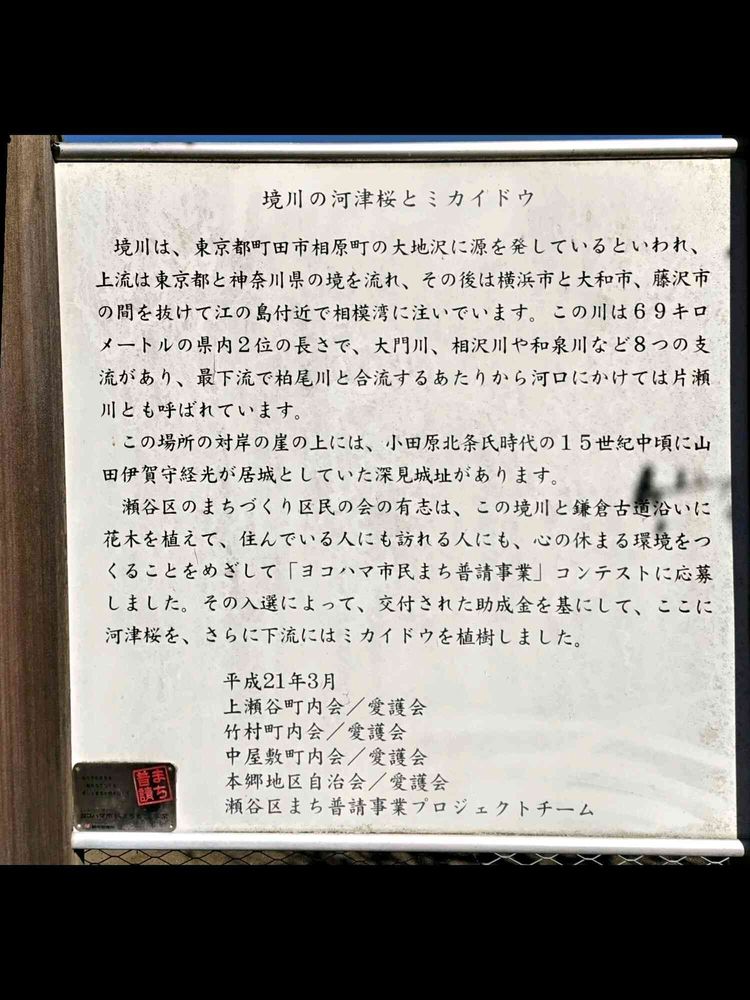 境川の河津桜とミカイドウ
境川は、東京都町田市相原町の大地沢に源を発しているといわれ、
上流は東京都と神奈川県の境を流れ、その後は横浜市と大和市、藤沢市
の間を抜けて江の島付近で相模湾に注いでいます。この川は69キロ
メートルの県内2位の長さで、大門川、相沢川や和泉川など8つの支
流があり、最下流で柏尾川と合流するあたりから河口にかけては片瀬
川とも呼ばれています。
この場所の対岸の崖の上には、小田原北条氏時代の15世紀中頃に山
田伊賀守経光が居城としていた深見城址があります。
瀬谷区のまちづくり区民の会の有志は、この境川と鎌倉古道沿いに
花木を植えて、住んでいる人にも訪れる人にも、心の休まる環境をつ
くることをめざして「ヨコハマ市民まち普請事業」コンテストに応募
しました。その入選によって、交付された助成金を基にして、ここに
河津桜を、さらに下流にはミカイドウを植樹しました。
平成21年3月
上瀬谷町内会／愛護会
竹村町内会／愛護会
中屋敷町内会／愛護会
本郷地区自治会／愛護会
瀬谷区まち普請事業プロジェクトチーム
まち
普請